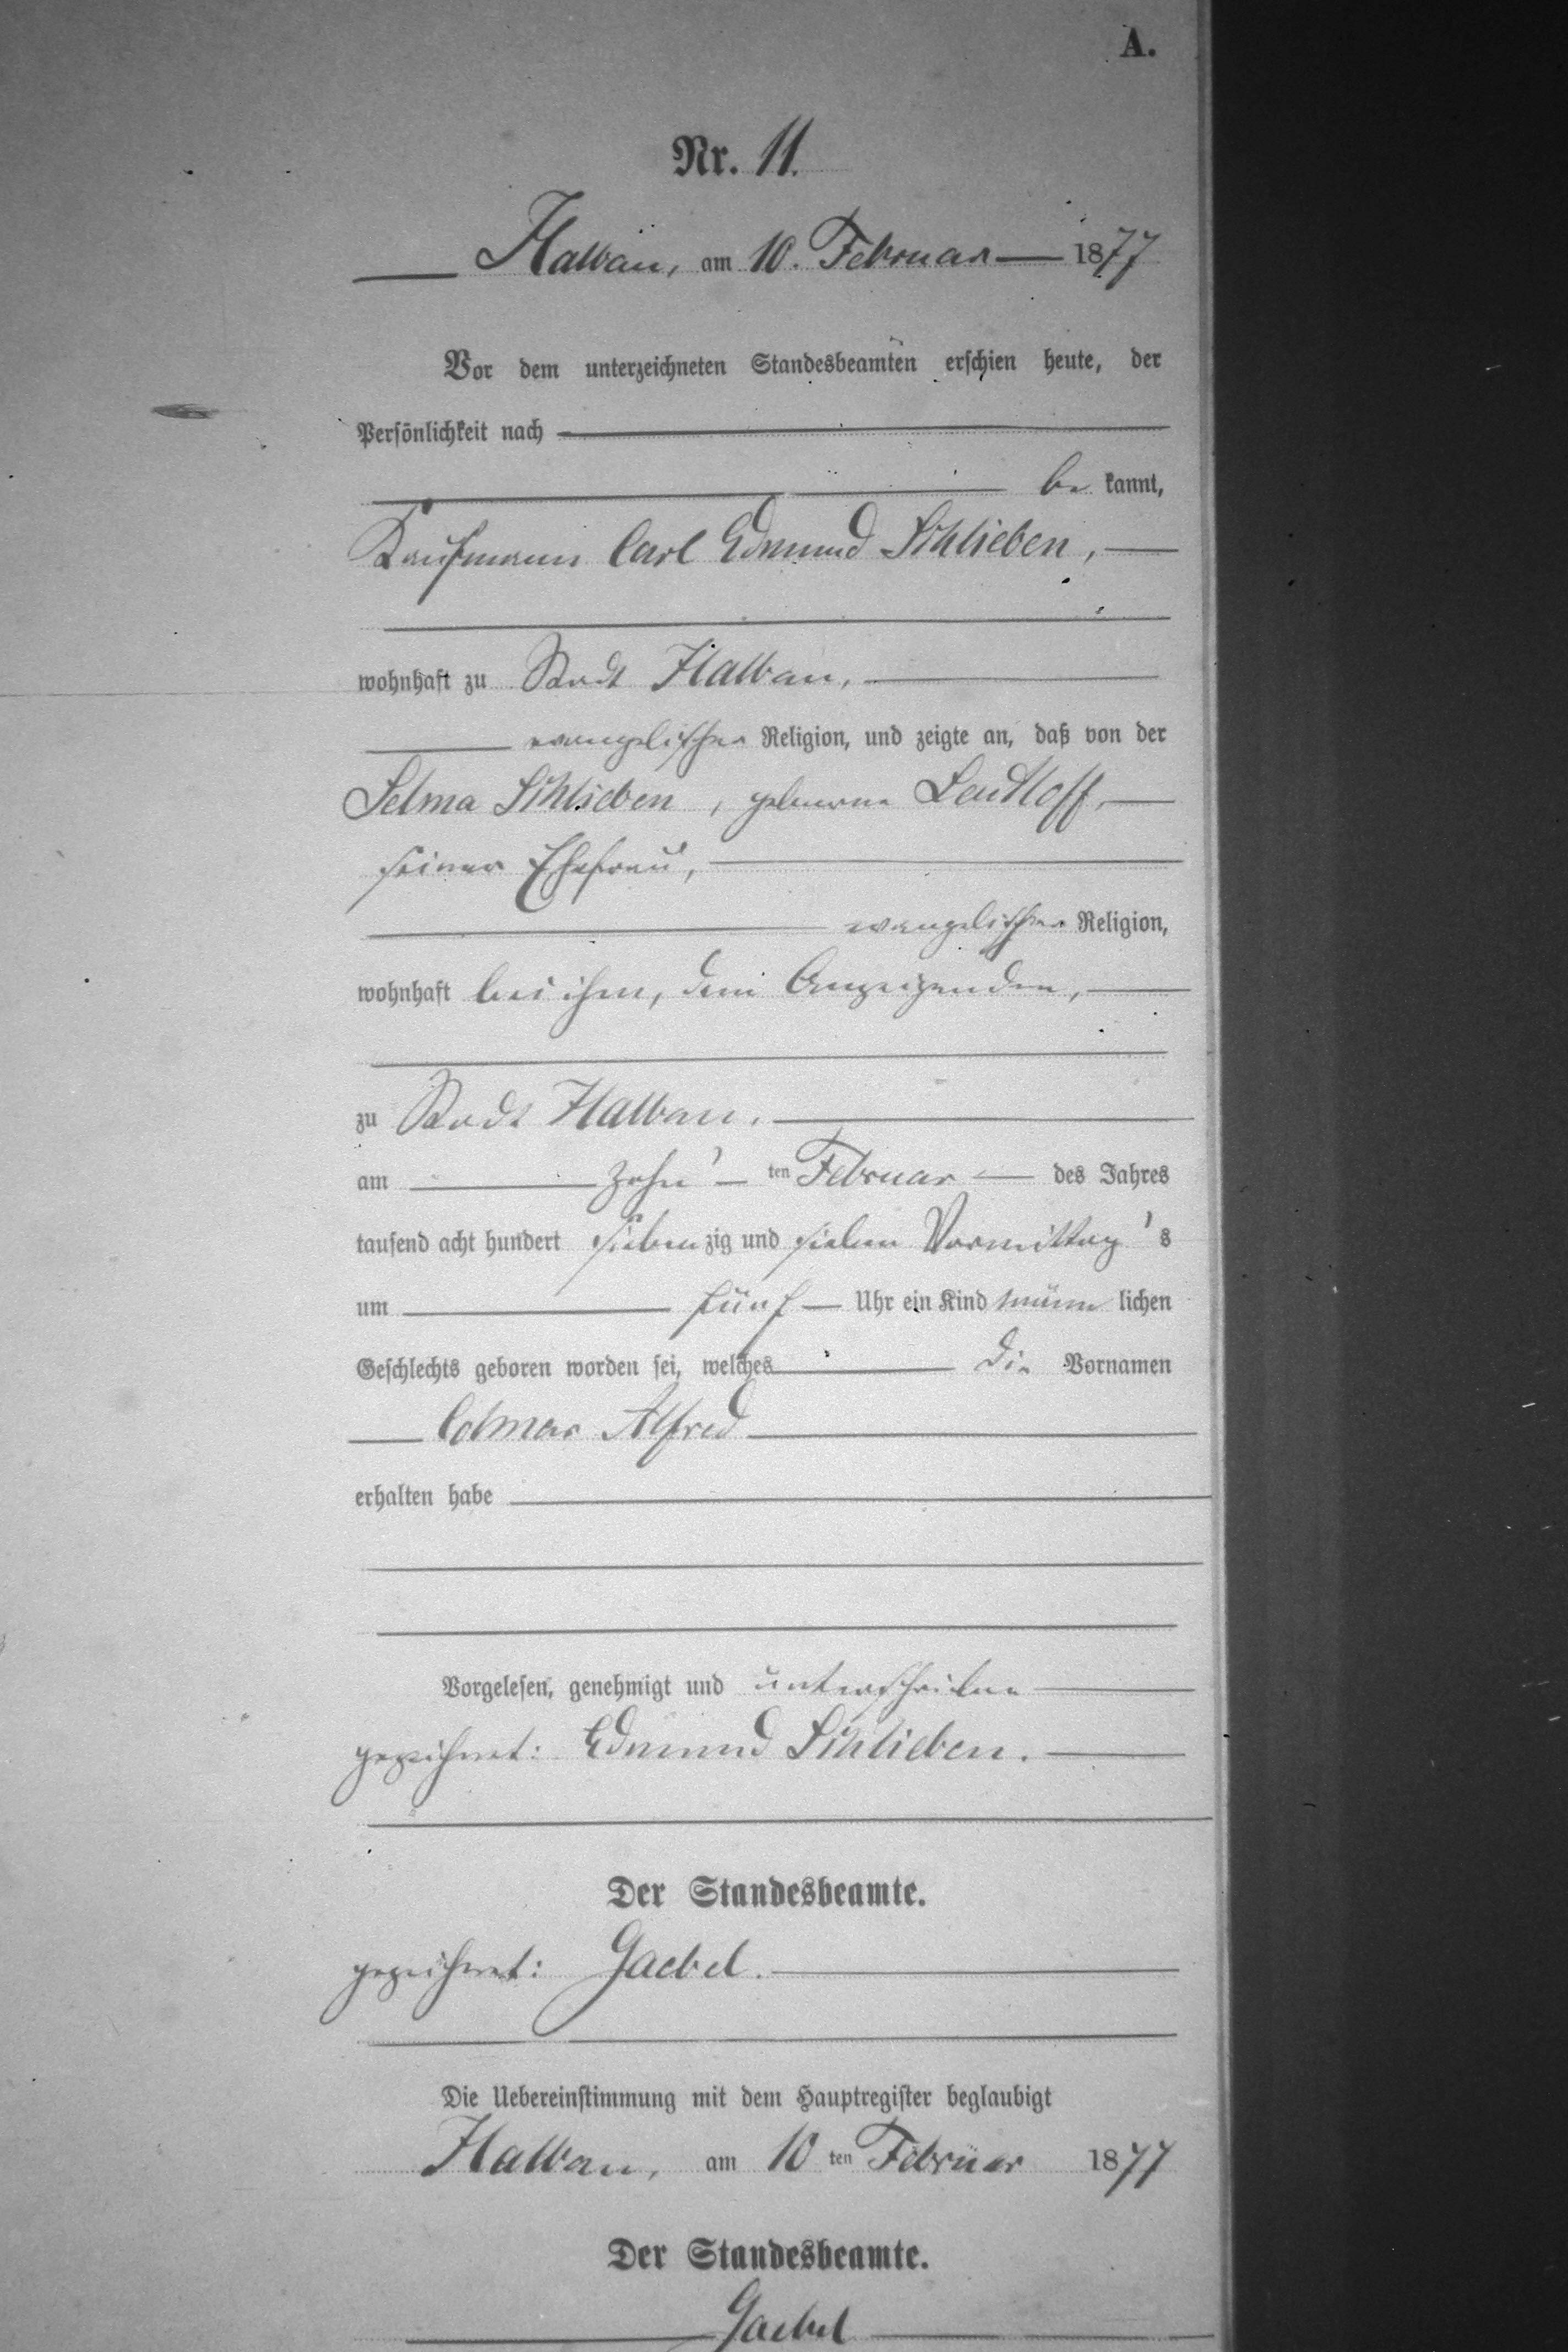 A.
Nr. 11.
Halbau, am 10. Februar 1877
Vor dem unterzeichneten Standesbeamten erschien heute, der
Persönlichkeit nach
be kannt,
Kaufmann Carl Edmund Schlieben,
wohnhaft zu Stadt Halbau,
evangelischer Religion, und zeigte an, daß von der
Selma Schlieben, geborene Leutloff,
seiner Ehefrau,
evangelischer Religion,
wohnhaft bei ihm, dem Anzeigenden,
zu Stadt Halbau,
am zehn'ten Februar des Jahres
tausend acht hundert siebenzig und sieben Vormittag's
um fünf Uhr ein Kind männlichen
Geschlechts geboren worden sei, welches die Vornamen
Colmar Alfred
erhalten habe
Vorgelesen, genehmigt und unterschrieben
gezeichnet: Edmund Schlieben.
Der Standesbeamte.
gezeichnet: Gaebel.
Die Uebereinstimmung mit dem Hauptregister beglaubigt
Halbau, am 10ten Februar 1877
Der Standesbeamte.
Gaebel